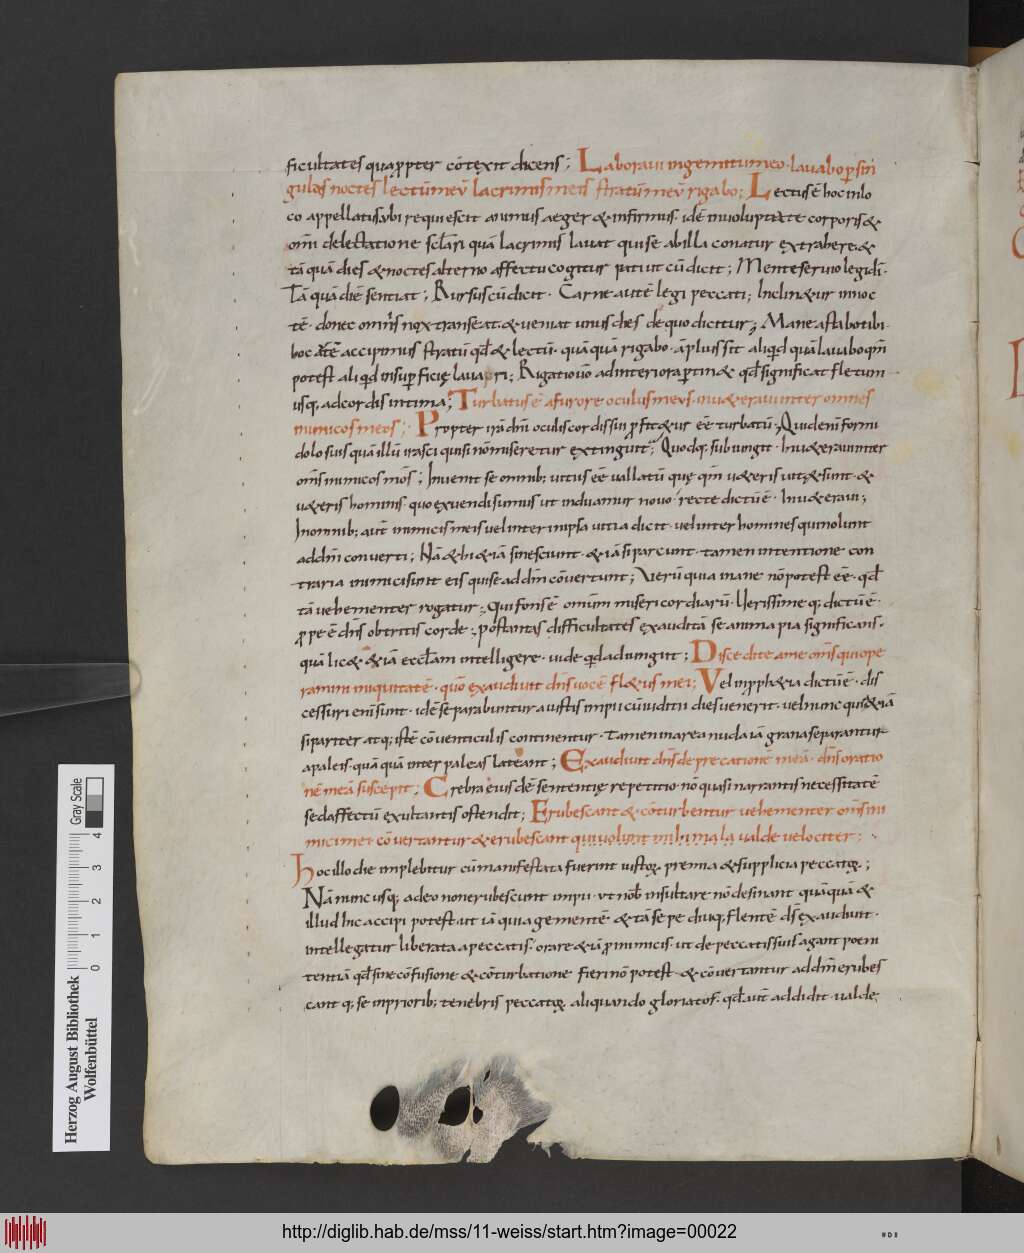 ficultates qua ꝓpter cōtexit dicens; Laboraui in gemitu meo · lauabo ꝑ sin
gulas noctes lectū meū lacrimis meis stratū meū rigabo; Lectus ē hoc in lo
co appellatus ubi requiescit animus aeger & infirmus · idē in uoluptate corporis &
om̄i delectatione sc̄lari quā lacrimis lauat qui se ab illa conatur extrahere · &
tā quā dies & noctes alterno affectu cogitur pati ut cū dicit; Mente seruio legi dī ·
Tā quā diē sentiat; Rursus cū dicit · Carne autē legi peccati; Inclin&ur in noc
tē · donec omnis nox transeat · & ueniat unus dies de quo dicitur; Mane astabo tibi ·
hoc accipimus stratū qd̄ & lectū · quā quā rigabo · āplius sit aliqd quā lauabo qm̄
potest aliqd in superficie lauari; Rigatio uō ad interiora ꝑtin& qd̄ significat fletum
usq; ad cordis intima; Turbatus ē a furore oculus meus · inu&eraui inter omnes
inimicos meos; Propter irā dn̄i oculis cordis sui ꝓfit&ur eē turbatū; Quid enī formi
dolosius quā illū irasci qui si nō miseretur extinguit; Quodq; subiungit · Inu&eraui inter
om̄s inimicos mōs; Inuenit se omnib; uitiis eē uallatū que qm̄ u&eris uite sunt · &
u&eris hominis · quo exuendi sumus ut induamur nouo · recte dictū ē · Inu&eraui;
In omnib; aut̄ inimicis meis uel inter ipsa uitia dicit · uel inter homines qui nolunt
ad dn̄m conuerti; Nā & hi & iā si nesciunt · & iā si parcunt · tamen intentione con
traria inimici sunt eis qui se ad dn̄m cōuertunt; Verū quia inane nō potest eē · qd̄
tā uehementer rogatur; qui fons ē omnium misericordiarū · Uerissime q; dictū ē ·
ꝓpe ē dn̄s obtritis corde; post tantas difficultates exauditā se anima pia significans ·
quā lic& · & iā eccl̄am intelligere · uide qd adiungit; Discedite a me om̄s qui ope
ramini iniquitatē · quō exaudiuit dn̄s uocē fl&us mei; Vel in ꝓph&ia dictū ē · dis
cessuri enī sunt · idē separabuntur a iustis impii cū iudicii dies uenerit · uel nunc quia & iā
si pariter atq; istē cōuenticulis continentur · tamen in area nuda iā grana separantur
a paleis · quā quā inter paleas lateant; Exaudiuit dn̄s deprecatione meā · dn̄s oratio
nē meā suscepit; Crebra eiusdē sententie repetitio nō quasi narrantis necessitatē
sed affectū exultantis ostendit; Erubescant & cōturbentur uehementer om̄s ini
mici mei cōuertantur & erubescant qui uolunt mihi mala ualde uelociter;
Hoc illo die implebitur cū manifestata fuerint iustoꝝ premia & supplicia peccatoꝝ;
Nā nunc usq; adeo non erubescunt impii · ut nob̄ insultare nō desinant quāquā &
illud hic accipi potest ut iā quia gementē · & tā sepe diuq; flentē dn̄s exaudiuit ·
intellegatur liberata a peccatis · orare & iā ꝓ inimicis · ut de peccatis suis agant poeni
tentiā qd̄ sine cōfusione & cōturbatione fieri nō potest · & cōuertantur ad dn̄m erubes
cant q; se in priorib; tenebris peccatoꝝ aliquando gloriatos · qd̄ aut̄ addidit · ualde
Herzog August Bibliothek
Wolfenbüttel
0 1 2 3 4
Gray Scale
http://diglib.hab.de/mss/11-weiss/start.htm?image=00022